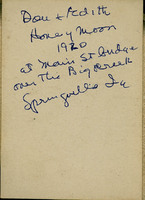 Don & Edith
Honey Moon
1920
at Main St bridge
over The Big Creek
Springville Ia